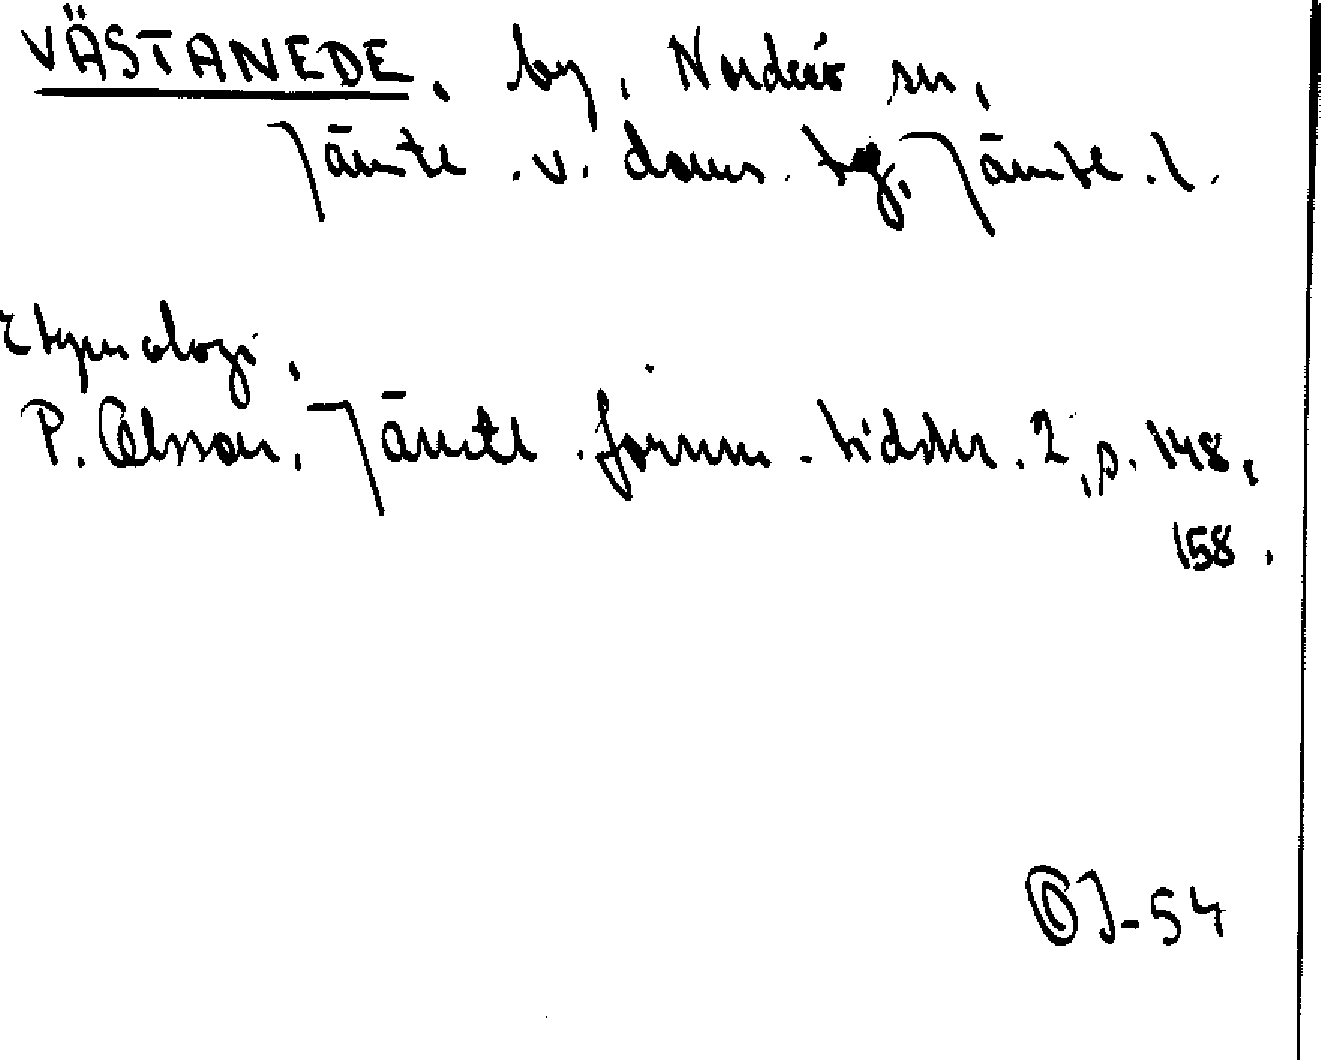 VÄSTANEDE, by, Norderö sn,
Jämtl. v. doms. tg, Jämtl. l.
Etymologi,
P. Olsson, Jämtl. fornm. tidskr. 2, p. 148,
158.
OJ-54